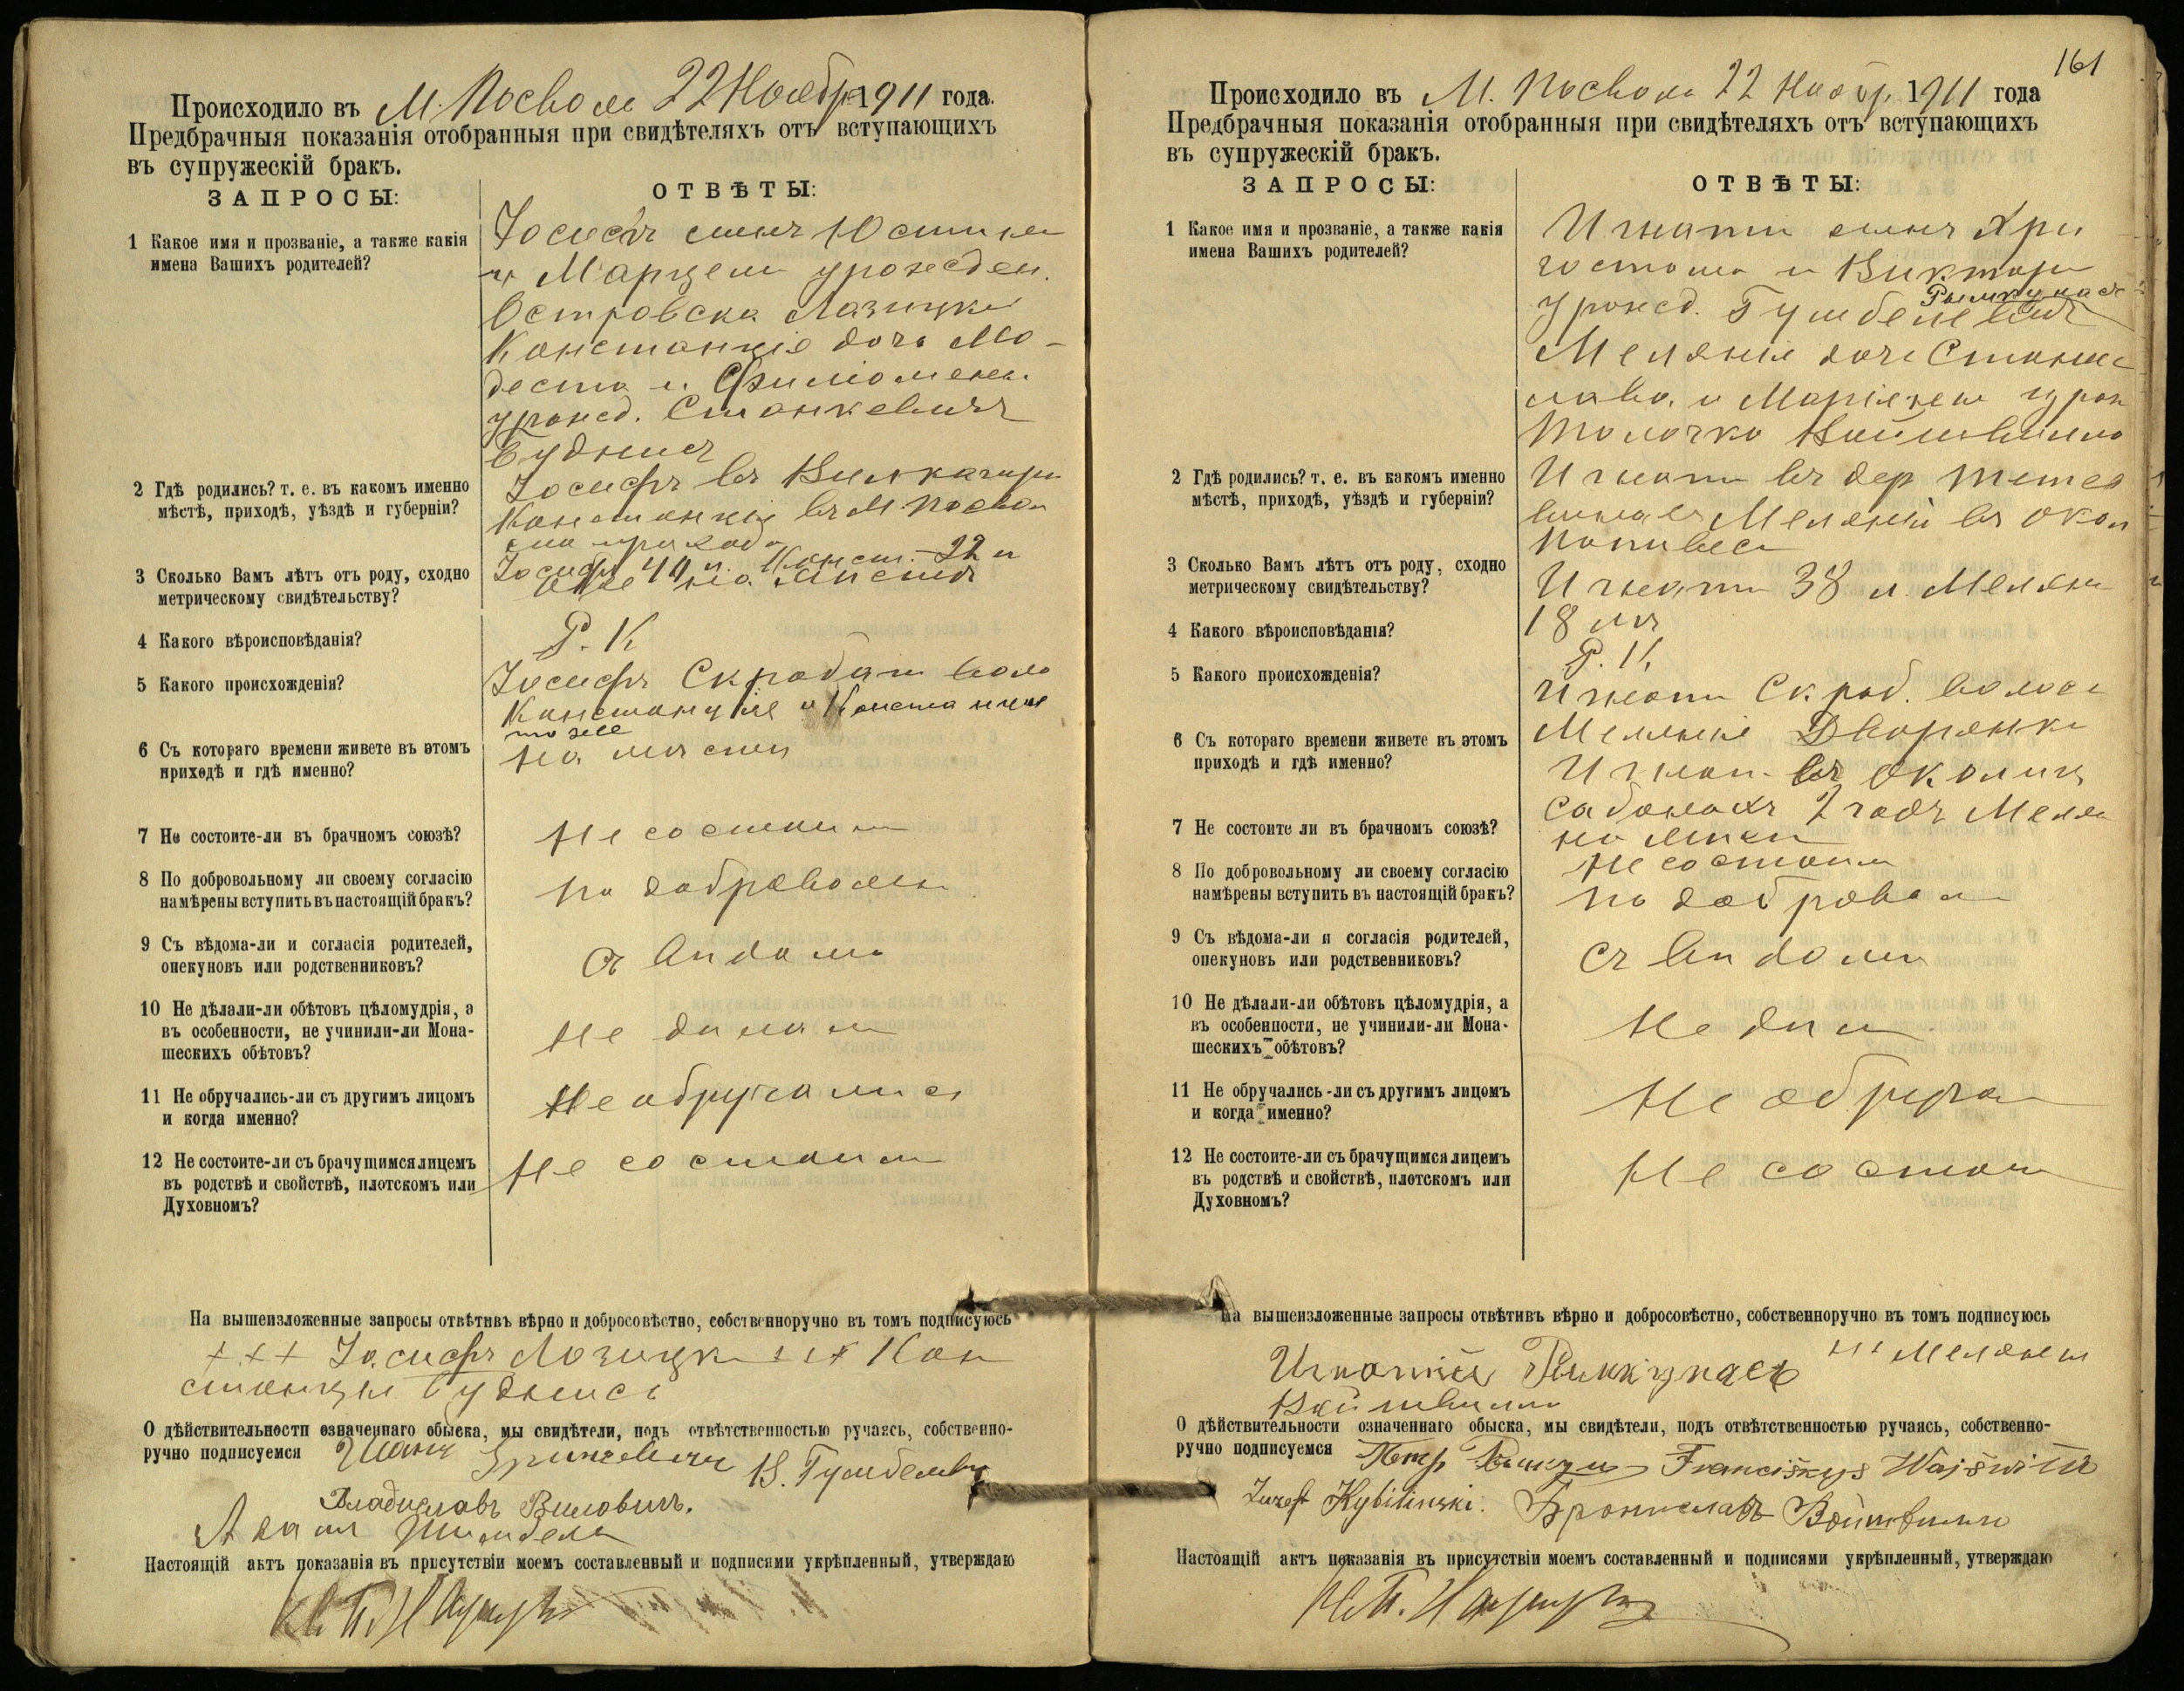 Происходило въ М. Посволе 22 Ноябр 1911 года.
Предбрачныя показанія отобранныя при свидѣтеляхъ отъ вступающихъ
въ супружескій бракъ.
ЗАПРОСЫ:
ОТВѢТЫ:
1 Какое имя и прозваніе, а также какія
имена Вашихъ родителей?
Іосифъ сынъ Юстина
и Марцели урожден.
Островска Лазицки
Констанція дочь Мо-
деста и Филіомены
урожд. Станкевичъ
Будрысъ
2 Гдѣ родились? т. е. въ какомъ именно
мѣстѣ, приходѣ, уѣздѣ и губерніи?
Іосифъ въ
Констанція въ М. Посвол
прихода
3 Сколько Вамъ лѣтъ отъ роду, сходно
метрическому свидѣтельству?
Іосифъ л. Конст. 22 л
4 Какого вѣроисповѣданія?
Р. К
5 Какого происхожденія?
Іосифъ воло
Констанція и Констанція
тоже
6 Съ котораго времени живете въ этомъ
приходѣ и гдѣ именно?
на мѣсти
7 Не состоите-ли въ брачномъ союзѣ?
Не состоим
8 По добровольному ли своему согласію
намѣрены вступить въ настоящій бракъ?
по доброволь
9 Съ вѣдома-ли и согласія родителей,
опекуновъ или родственниковъ?
Съ вѣдома
10 Не дѣлали-ли обѣтовъ цѣломудрія, а
въ особенности, не учинили-ли Мона-
шескихъ обѣтовъ?
Не дѣлали
11 Не обручались-ли съ другимъ лицомъ
и когда именно?
Не обручались
12 Не состоите-ли съ брачущимся лицемъ
въ родствѣ и свойствѣ, плотскомъ или
Духовномъ?
Не состоим
На вышеизложенные запросы отвѣтивъ вѣрно и добросовѣстно, собственноручно въ томъ подписуюсь
+++ Іосифъ Лозицки +++ Кон
станція Будрысъ
О дѣйствительности означеннаго обыска, мы свидѣтели, подъ отвѣтственностью ручаясь, собственно-
ручно подписуемся Иванъ В. Гумбелевич
Владиславъ Виловичъ.
Адам
Настоящій актъ показанія въ присутствіи моемъ составленный и подписями укрѣпленный, утверждаю
161
Происходило въ М. Посволе 22 Ноябр. 1911 года
Предбрачныя показанія отобранныя при свидѣтеляхъ отъ вступающихъ
въ супружескій бракъ.
ЗАПРОСЫ:
ОТВѢТЫ:
1 Какое имя и прозваніе, а также какія
имена Вашихъ родителей?
Игнати сынъ Хри
и Виктори
урожд. Гумбелевичъ Рымкунасъ
Меланія дочь Станис
лава и Маріянны урож
Толочко Войшвилло
2 Гдѣ родились? т. е. въ какомъ именно
мѣстѣ, приходѣ, уѣздѣ и губерніи?
Игнати въ дер
Меланія въ окол
3 Сколько Вамъ лѣтъ отъ роду, сходно
метрическому свидѣтельству?
Игнати 38 л. Мелян
18 лѣт
4 Какого вѣроисповѣданія?
Р. К.
5 Какого происхожденія?
Игнати Скроб. волос
Меланія Дворянка
6 Съ котораго времени живете въ этомъ
приходѣ и гдѣ именно?
Игнат. въ околиц
2 годъ Мелян
на мѣсти
7 Не состоите ли въ брачномъ союзѣ?
Не состоим
8 По добровольному ли своему согласію
намѣрены вступить въ настоящій бракъ?
по добровол
9 Съ вѣдома-ли и согласія родителей,
опекуновъ или родственниковъ?
Съ вѣдома
10 Не дѣлали-ли обѣтовъ цѣломудрія, а
въ особенности, не учинили-ли Мона-
шескихъ обѣтовъ?
Не дѣл
11 Не обручались-ли съ другимъ лицомъ
и когда именно?
Не обруча
12 Не состоите-ли съ брачущимся лицемъ
въ родствѣ и свойствѣ, плотскомъ или
Духовномъ?
Не состои
На вышеизложенные запросы отвѣтивъ вѣрно и добросовѣстно, собственноручно въ томъ подписуюсь
Игнатій Римкунасъ Мелянія
Войшвилло
О дѣйствительности означеннаго обыска, мы свидѣтели, подъ отвѣтственностью ручаясь, собственно-
ручно подписуемся Петр Franciškus Wajšwiłło
Juzef Kybilinski. Брониславъ Войшвилло
Настоящій актъ показанія въ присутствіи моемъ составленный и подписями укрѣпленный, утверждаю